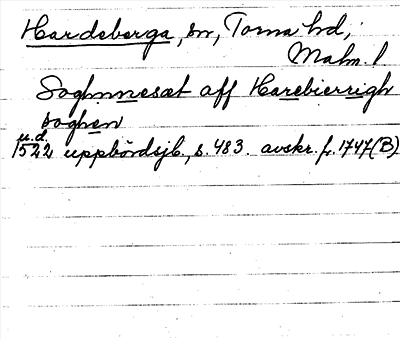 Hardeberga, sn, Torna hd,
Malm. l
Soghnnesæt aff Harebierrigh
soghen
u.d.
1522 uppbördsjb., s. 483. avskr. fr. 1747(B)